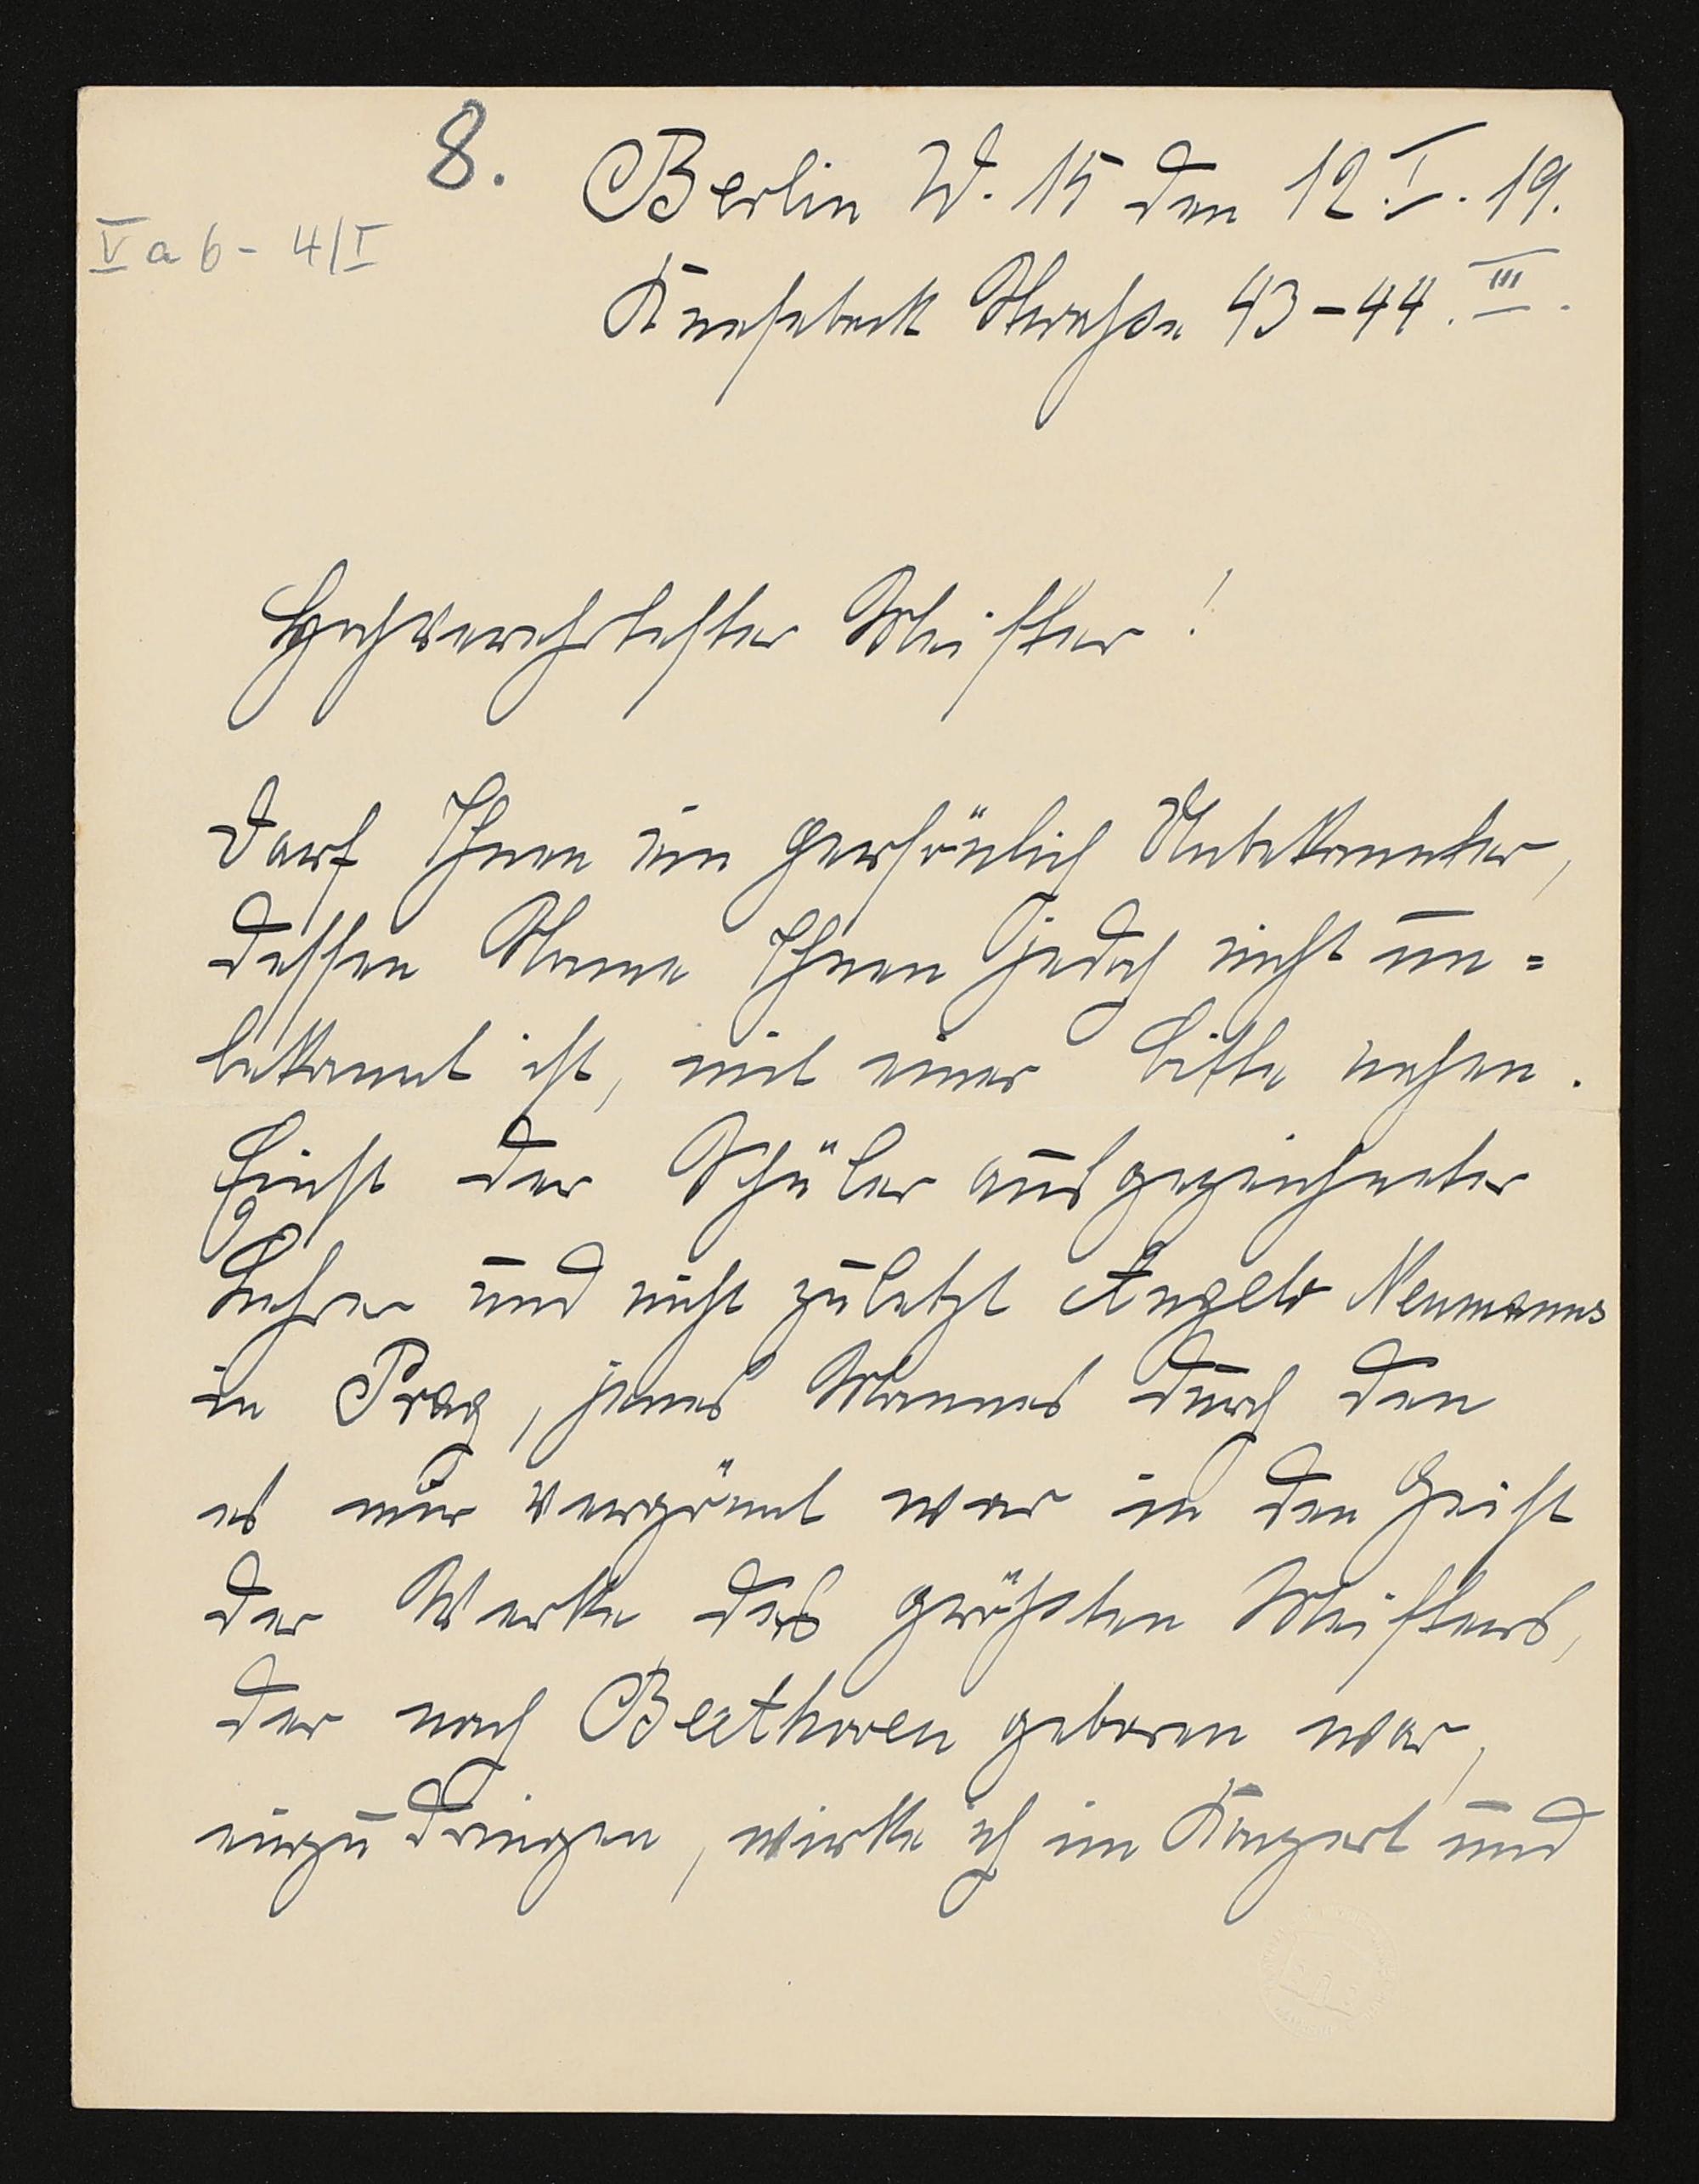 8.
Berlin W. 15 den 12. I. 19.
V a 6 - 4/I
Knesebeck Strasse 43-44. III.
Hochverehrtester Meister!
Darf Ihnen ein persönlich Unbekannter,
dessen Name Ihnen jedoch nicht un=
bekannt ist, mit einer Bitte nahen.
Einst der Schüler ausgezeichneter
Lehrer und nicht zuletzt Angelo Neumanns
in Prag, jenes Mannes durch den
es mir vergönnt war in den Geist
der Werke des größten Meisters,
der nach Beethoven geboren war,
einzudringen, wirkte ich im Konzert und